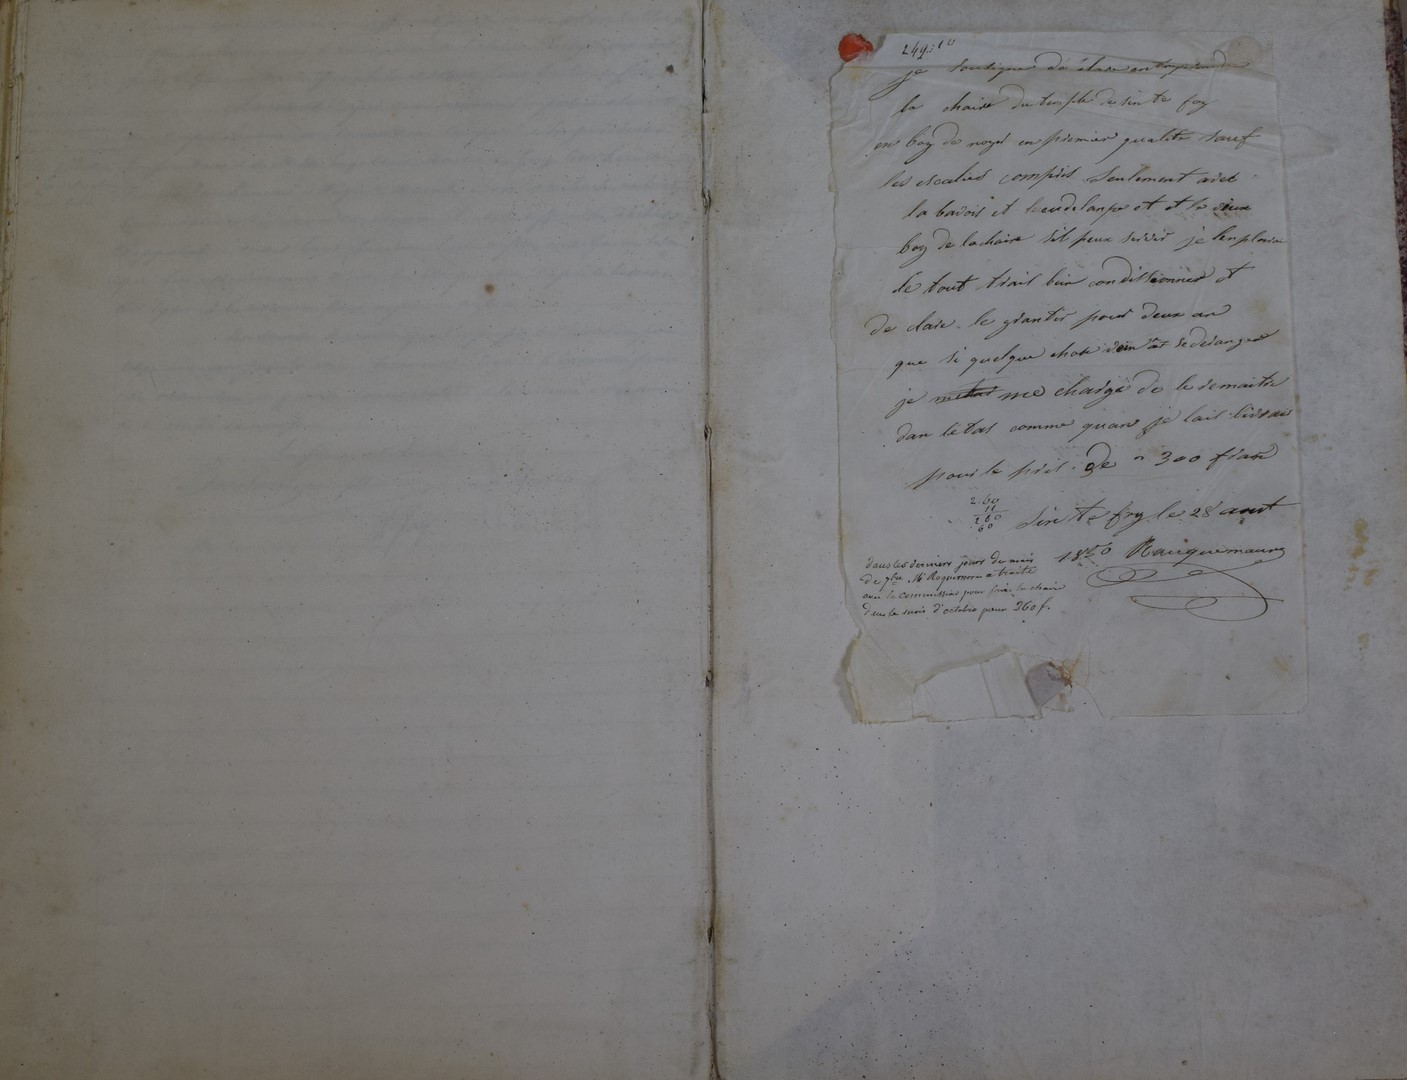 249:10
je sousigne dé clare entreprendre
la chaire du temple de sinte foy
en boy de noyé en premier qualite sauf
les escaliés compris seulement avec
la bavois et et le vieux
boy de la chaire sil peux servir je lenploire
le tout trail bien condissionner et
de clare le grantir pour deux an
que si quelque chose vein tet se deranger
je me charge de le remaitre
dan létat comme quant je lais livrai
pour le prix de 300 franc
260
11
260
60
Sin te foy le 28 aout
1850 Rauquemaure
dans les derniers jours du mois
de 7bre Mr Roquemaure a traité
avec la commission pour faire la chaire
dans le mois d'octobre pour 260 f.